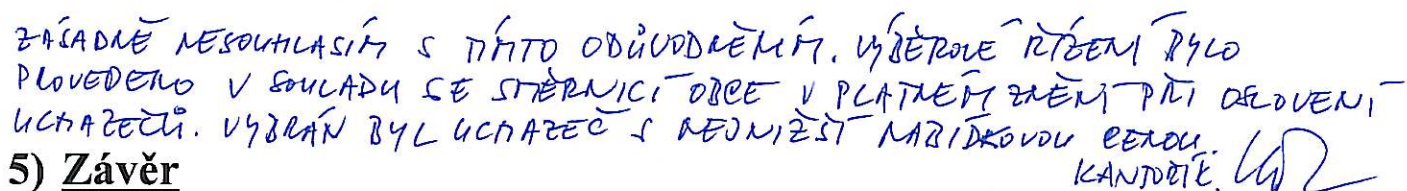 ZÁSADNĚ NESOUHLASÍM S TÍMTO ODŮVODNĚNÍM. VÝBĚROVÉ ŘÍZENÍ BYLO
PROVEDENO V SOULADU SE SMĚRNICÍ OBCE V PLATNÉM ZNĚNÍ PŘI OSLOVENÍ
UCHAZEČŮ. VYBRÁN BYL UCHAZEČ S NEJNIŽŠÍ NABÍDKOVOU CENOU.
5) Závěr